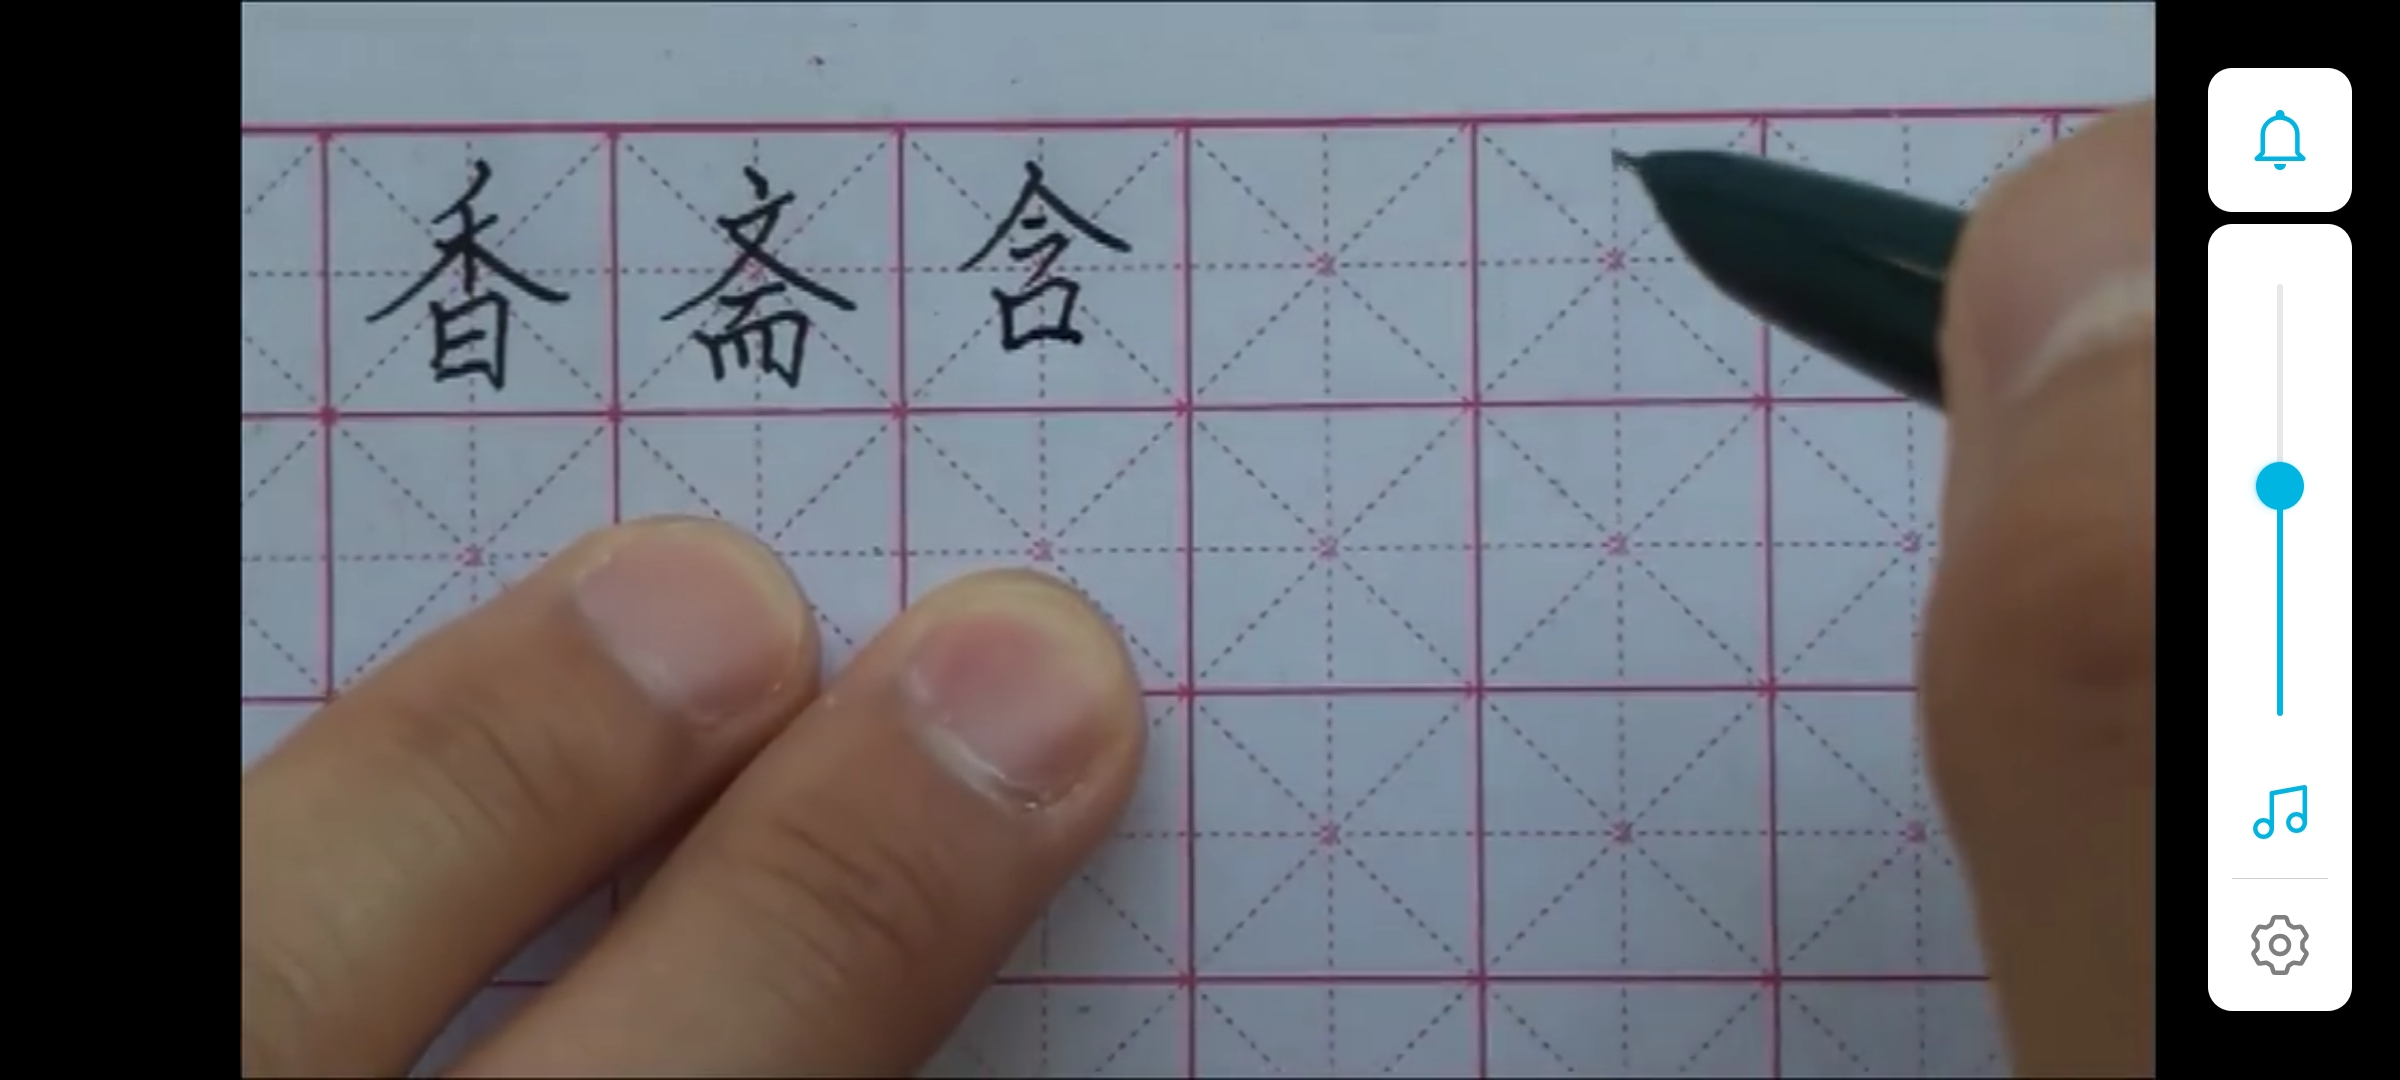 香斋含